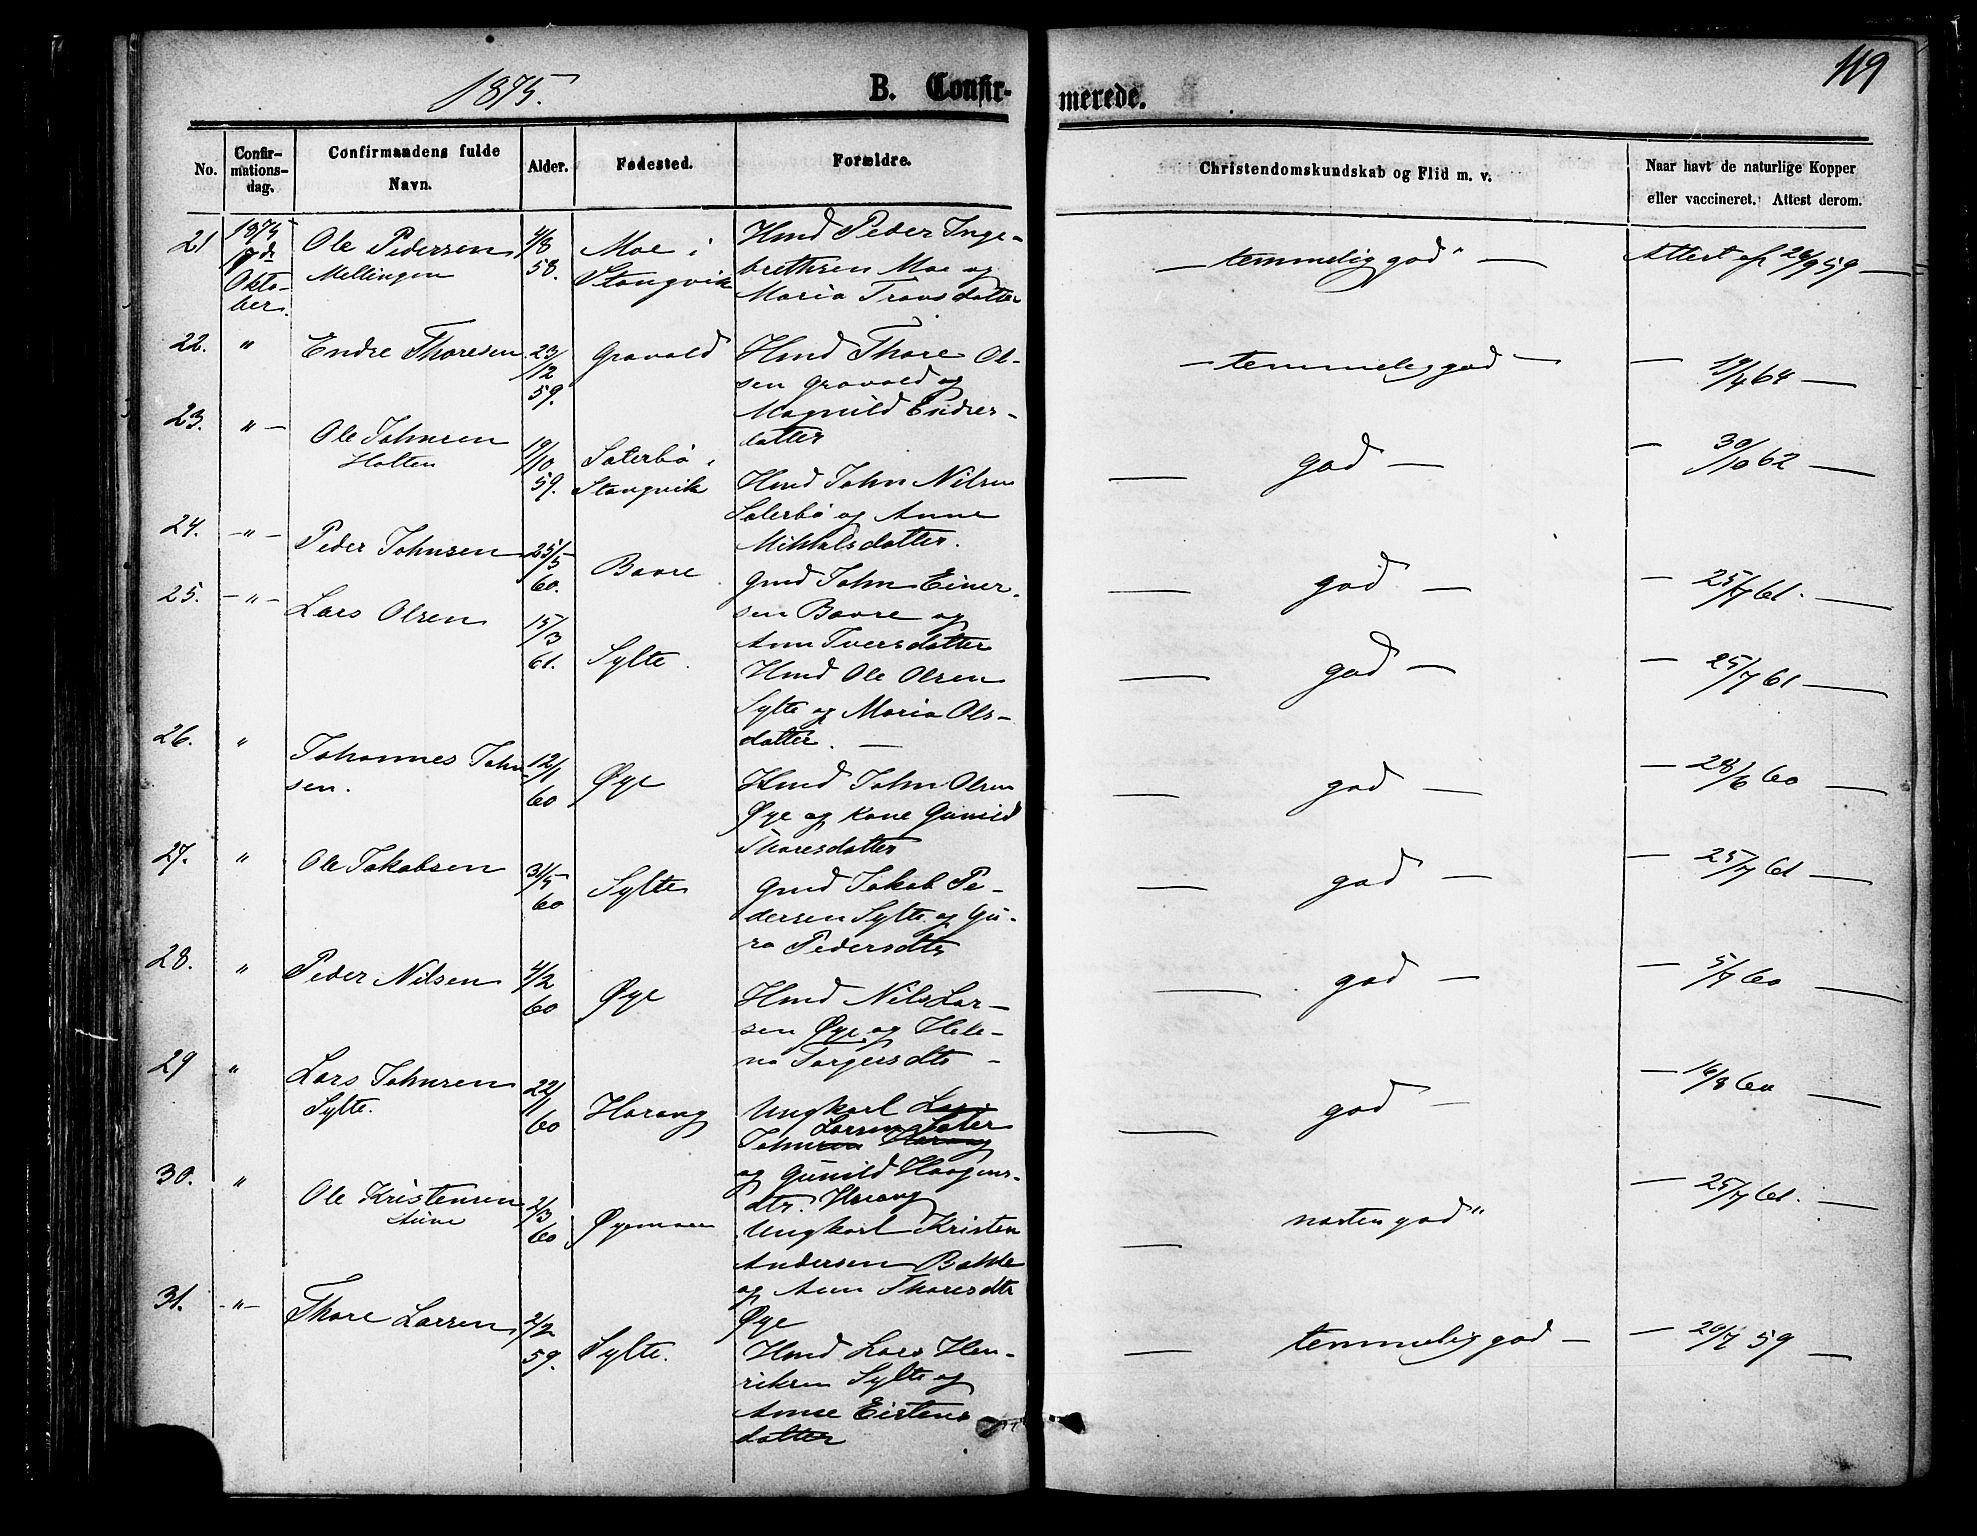 119
1875.
B. Confir-
merede.
No.
Confir-
mations-
dag.
Confirmandens fulde
Navn.
Alder.
Fødested.
Forældre.
Christendomskundskab og Flid m. v.
Naar havt de naturlige Kopper
eller vaccineret. Attest derom.
21
1875
Okto-
ber.
Ole Pedersen
Mellingen
4/8
58.
Moe i
Stangvik
Hmd Peder Inge-
brethsen Moe og
Maria Transdatter
— temmelig god" —
Attest af 26/9 59 —
22.
"
Endre Thoresen
23/
12
59.
Gravald
Hmd Thore Ol-
sen Gravald og
Magnild Endres-
datter
— temmelig god —
— 19/4 64 —
23.
" —
Ole Johnsen
Halten
19/
10
59.
Saterbø i
Stangvik
Hmd John Nilsen
Saterbø og Anne
Mikkalsdatter.
— god —
— 30/10 62 —
24.
— " —
Peder Johnsen
25/
5
60.
Bavre
Gmd John Einer-
sen Bavre og
Ann Iversdatter
— god —
— 25/7 61. —
25.
— " —
Lars Olsen
15/
3
61.
Sylte.
Hmd Ole Olsen
Sylte og Maria Ols-
datter. —
— god —
— 25/7 61 —
26.
"
Johannes John
sen.
12/1
60
Øye
Hmd John Olsen
Øye og Kone Gunild
Thoresdatter
— god —
— 28/6 60 —
27.
"
Ole Jakobsen
31/5
60
Sylte
Gmd Jakob Pe-
dersen Sylte og Gu-
ra Pedersdtr
— god —
— 25/7 61 —
28.
"
Peder Nilsen
4/2
60
Øye
Hmd Nils Lar-
sen Øye og Hele-
na Torgersdtr —
— god —
— 5/7 60 —
29
"
Lars Johnsen
Sylte.
22/
1
60
Harang
Ungkarl Lars
Larsen Sater
Johnsen Harang
og Gunild Haagens-
dtr. Harang
— god —
— 16/8 60 —
30.
"
Ole Kristensen
Aune
2/3
60
Øyemoen
Ungkarl Kristen
Andersen Bakke
og Ann Thoresdtr
Øye
— næsten god"
— 25/7 61. —
31.
— " —
Thore Larsen
2/2
59.
Sylte.
Hmd Lars Hen-
riksen Sylte og
Anne Eistens
datter
— temmelig god —
— 20/7 59 —